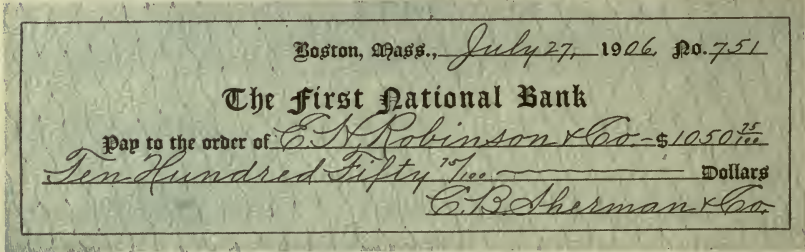 Boston, Mass., July 27, 1906. No. 751
The First National Bank
Pay to the order of E. H. Robinson & Co. - $1050 75/100
Ten Hundred Fifty 75/100 Dollars
C. B. Sherman & Co.